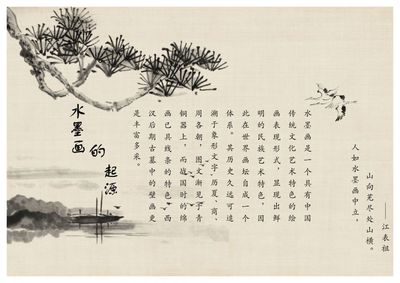 水墨画
的
起源
水墨画是一个具有中国
传统文化艺术特色的绘
画表现形式，显现出鲜
明的民族艺术特色，因
此在世界画坛自成一个
体系。其历史久远可追
溯于象形文字，历夏、商、
周各朝，图文渐见于青
铜器上，而战国时的绵
画已具线条的特色，西
汉后期古墓中的壁画更
是丰富多采。
人如水墨画中立，
山向荒尽处山横。
——江表祖